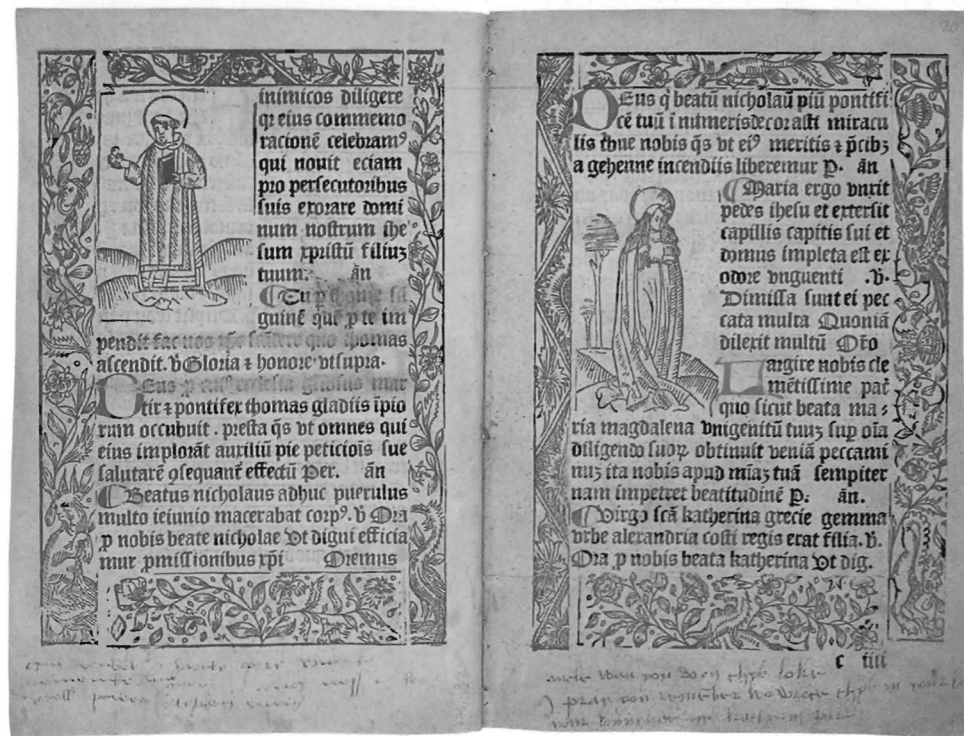 inimicos diligere
qꝛ eius commemo
racionē celebramꝰ
qui nouit eciam
pro persecutoribus
suis exorare domi
num nostrum ihe
sum xpristū filiuꝫ
tuum. ān
¶ Tu p
guinē quē ꝓ te im
pendit fac nos xp̄e scādere quo thomas
ascendit. ꝟ Gloria ⁊ honore vt supra.
Deus ꝓ cuiꝰ ecclesia gl̄iosus mar
tir ⁊ pontifex thomas gladiis īpio
rum occubuit. presta q̄s vt omnes qui
eius implorāt auxiliū pie peticiōis sue
salutarē ꝯsequant̄ effectū Per. ān
¶ Beatus nicholaus adhuc puerulus
multo ieiunio macerabat corpꝰ. ꝟ Ora
ꝓ nobis beate nicholae Vt digni efficia
mur ꝓmissionibus xp̄i Oremus
DEus q̇ beatū nicholaū piū pontifi
cē tuū ī numeris decorasti miracu
lis tribue nobis q̄s vt eiꝰ meritis ⁊ p̄cibꝫ
a gehenne incendiis liberemur P. ān
¶ Maria ergo vnxit
pedes ihesu et extersit
capillis capitis sui et
domus impleta est ex
odore vnguenti .ꝟ.
Dimissa sunt ei pec
cata multa Quoniā
dilexit multū Or̄o
Largire nobis cle
mētissime pat̄
quo sicut beata ma⸗
ria magdalena vnigenitū tuuꝫ suꝑ oīa
diligendo suoꝝ obtinuit veniā peccami
nuꝫ ita nobis apud mīaꝫ tuā sempiter
nam impetret beatitudinē P. ān.
¶ Virgo scā katherina grecie gemma
vrbe alexandria costi regis erat filia. ꝟ.
Ora ꝓ nobis beata katherina Vt dig.
c iiii
you
I pray you remember